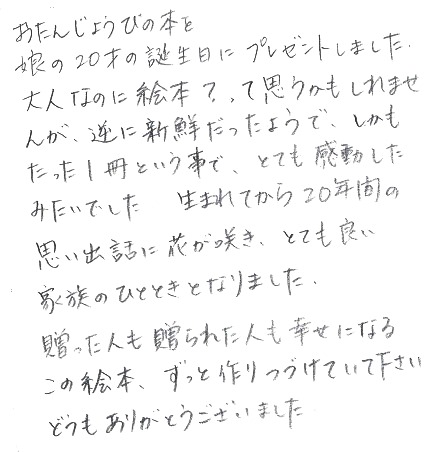 おたんじょうびの本を
娘の20才の誕生日にプレゼントしました.
大人なのに絵本?って思うかもしれませ
んが、逆に新鮮だったようで、しかも
たった1冊という事で、とても感動した
みたいでした 生まれてから20年間の
思い出話に花が咲き、とても良い
家族のひとときとなりました.
贈った人も贈られた人も幸せになる
この絵本、ずっと作りつづけていて下さい
どうもありがとうございました